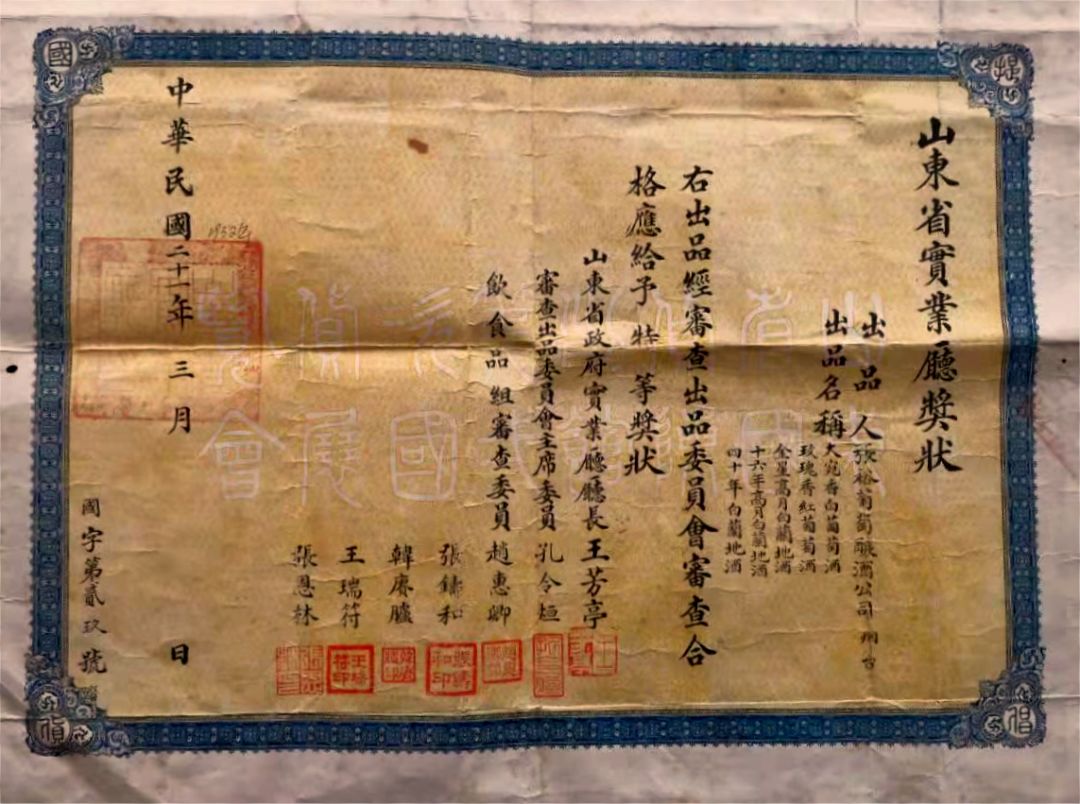 山東省實業廳獎狀
出品人 張裕葡萄釀酒公司 烟台
出品名稱 大宛香白葡萄酒
玫瑰香紅葡萄酒
金星高月白蘭地酒
十六年高月白蘭地酒
四十年白蘭地酒
右出品經審查出品委員會審查合
格應給予特等獎狀
山東省政府實業廳廳長王芳亭
審查出品委員會主席委員孔令烜
飲食品組審查委員趙惠卿
張鑄和
韓賡臚
王瑞符
張恩林
中華民國二十一年三月 日
1932年
國字第貳玖號
提
倡
國
貨